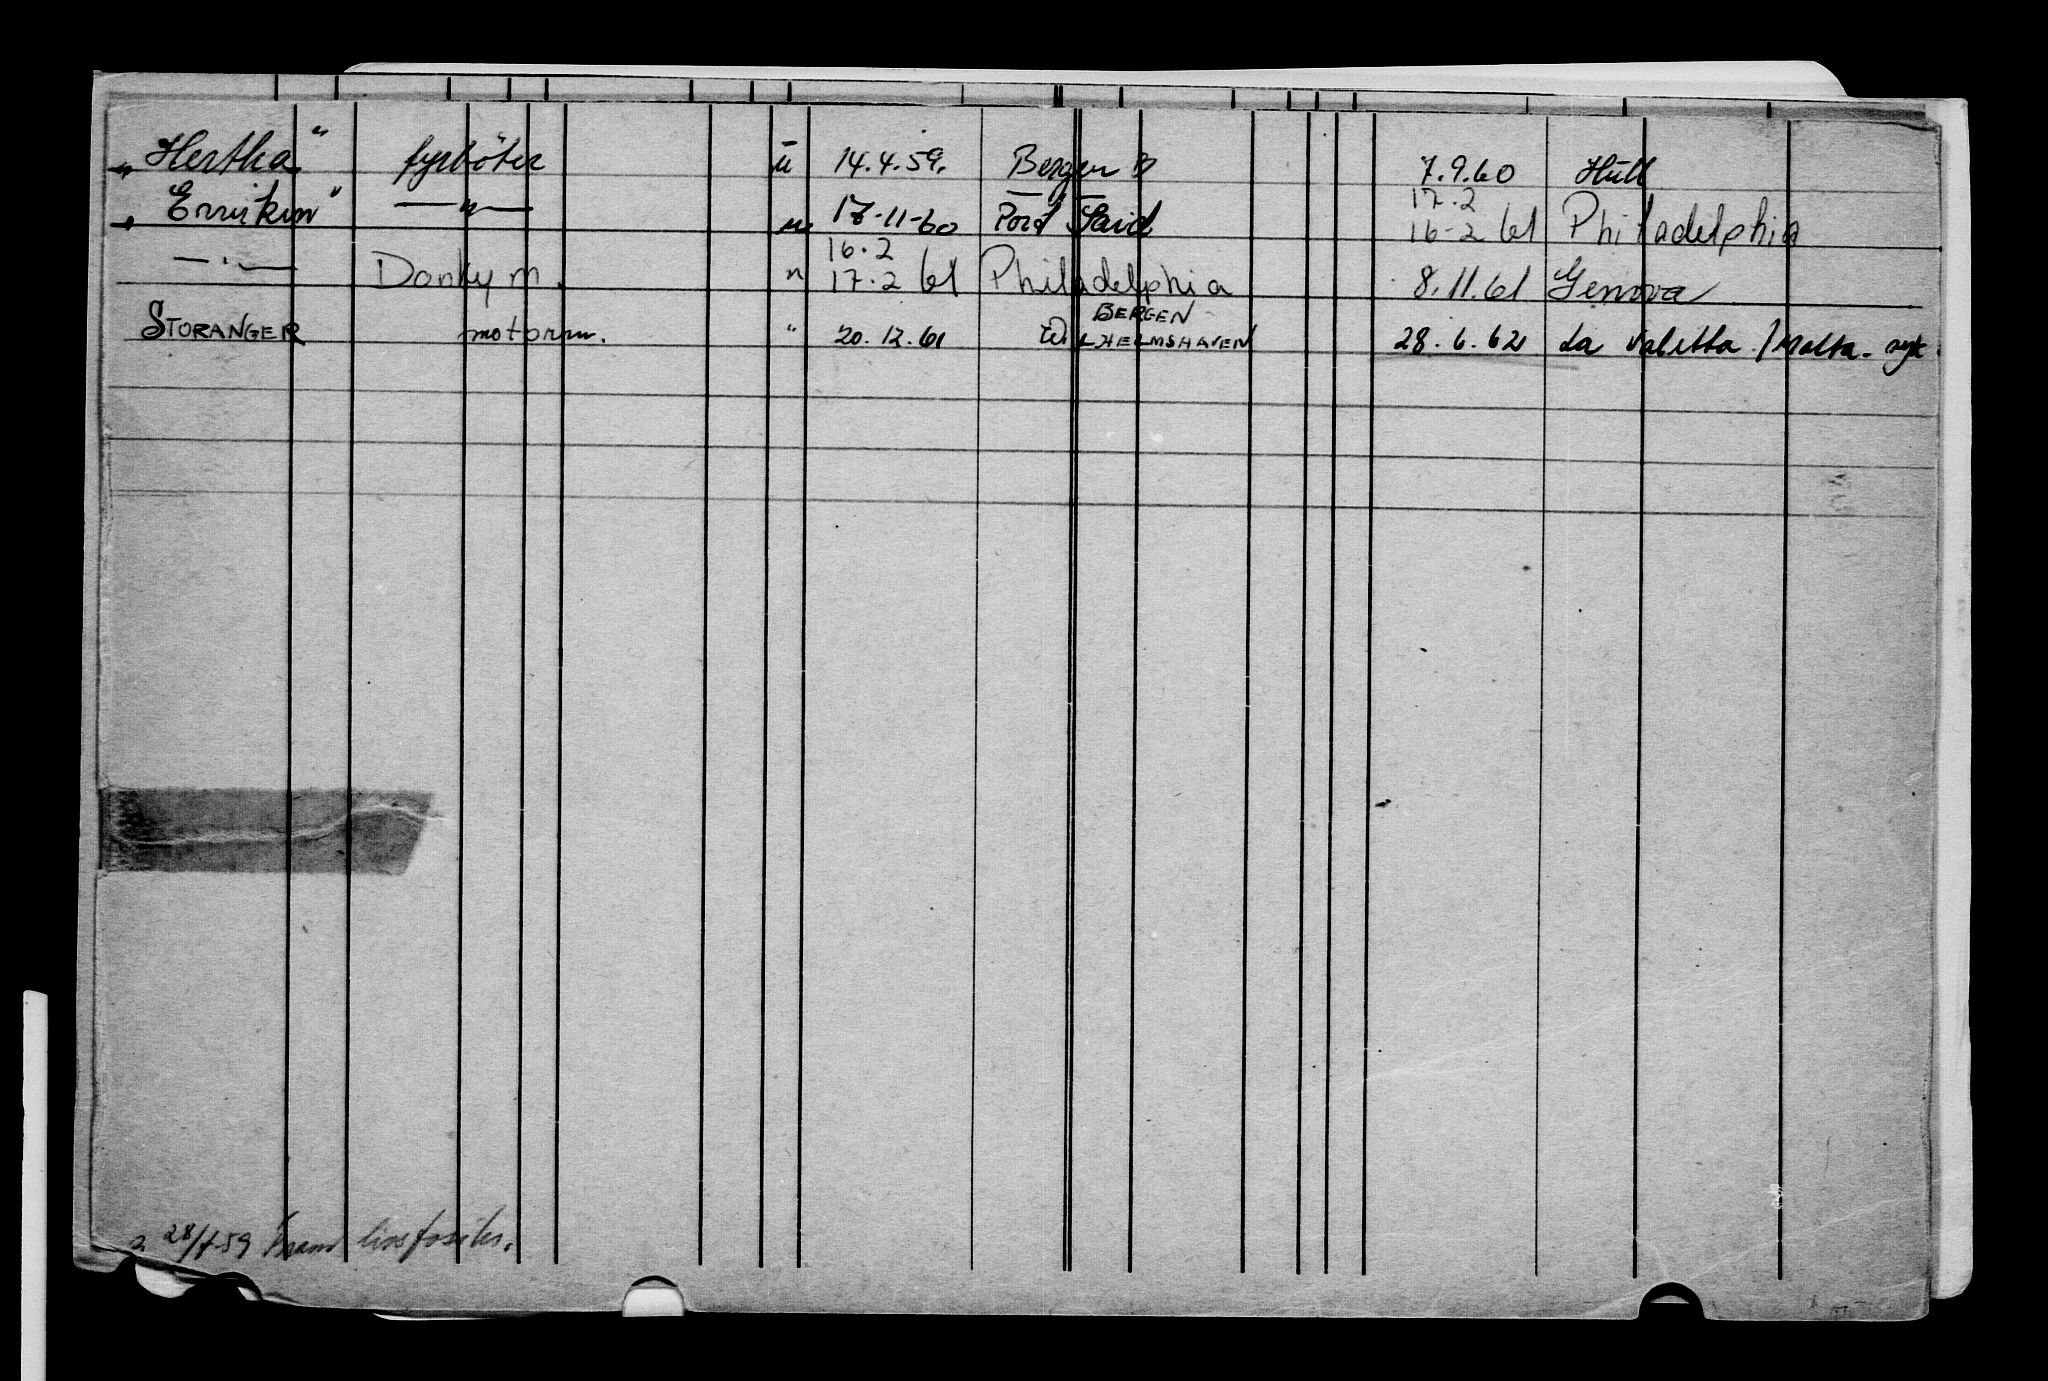 „Hertha" fyrbøter u 14.4.59. Bergen 7.9.60 Hull
17.2
„Ennikin" —"— u 17-11-60 Port Said 16-2 61 Philadelphia
16.2
—"— Donkym. " 17.2 61 Philadelphia 8.11.61 Genova
BERGEN
STORANGER motorm. " 20.12.61 WILHELMSHAVEN 28.6.62 La Valetta / Malta - syk.
28/ 59